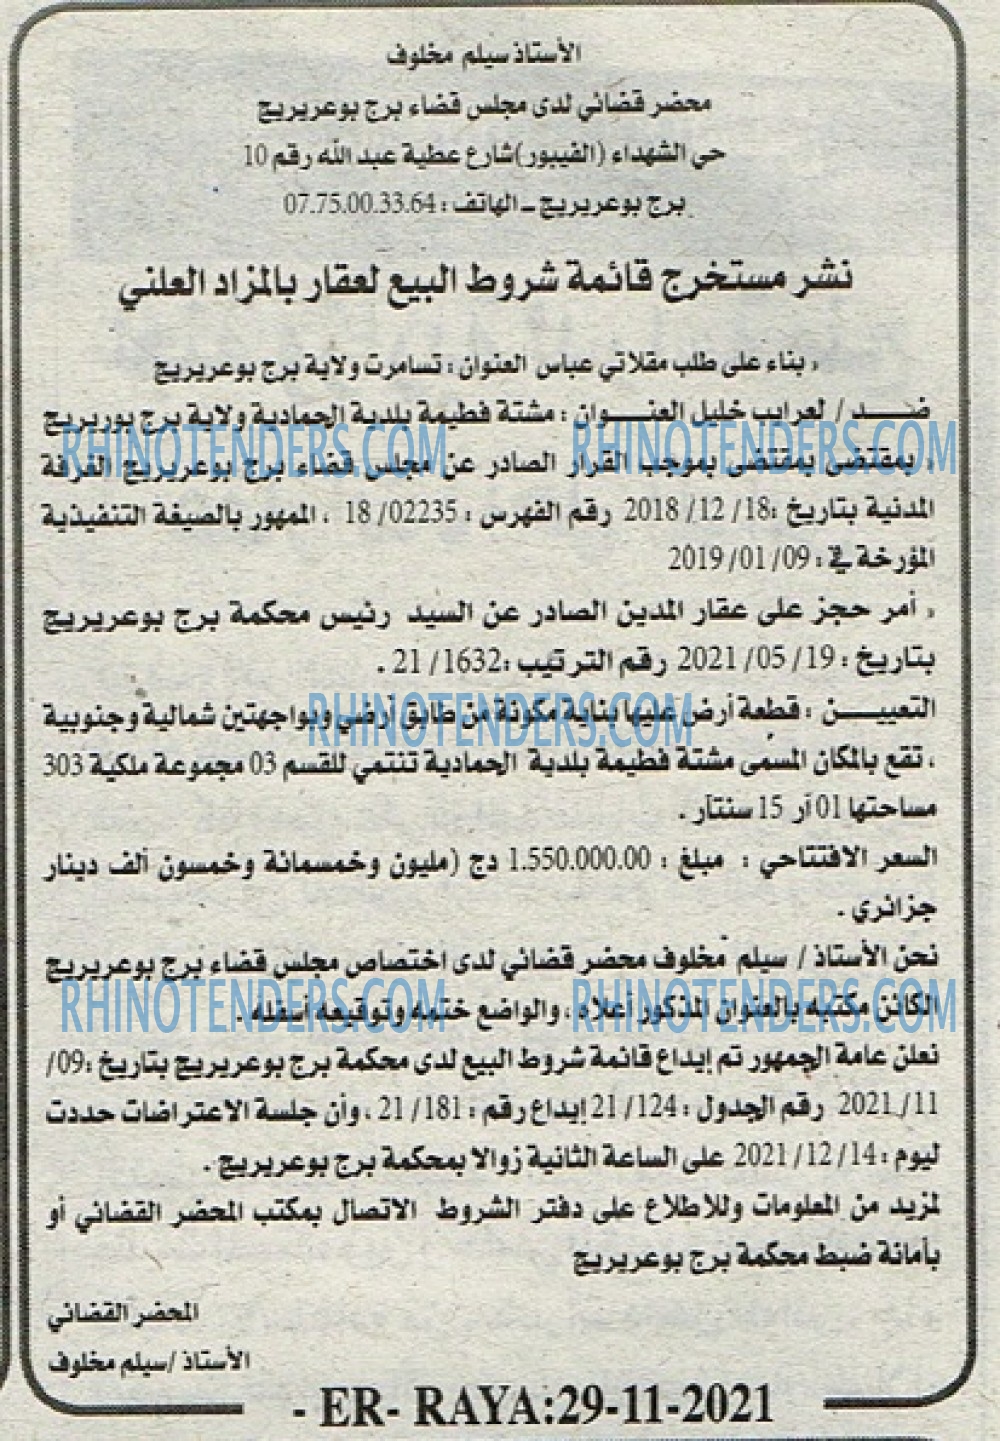 الأستاذ سيلم مخلوف
محضر قضائي لدى مجلس قضاء برج بوعريريج
حي الشهداء (الفيبور)شارع عطية عبد الله رقم 10
برج بوعريريج ـ الهاتف : 07.75.00.33.64
نشر مستخرج قائمة شروط البيع لعقار بالمزاد العلني
، بناء على طلب مقلاتي عباس العنوان : تسامرت ولاية برج بوعريريج
ضـــد / لعرايب خليل العنـــوان : مشتة فطيمة بلدية الحمادية ولاية برج بوريريج
RHINOTENDERS.COM RHINOTENDERS.COM
، بمقتضى بمقتضى بموجب القرار الصادر عن مجلس قضاء برج بوعريريج الغرفة
المدنية بتاريخ :18/ 12/ 2018 رقم الفهرس : 02235/ 18 ، الممهور بالصيغة التنفيذية
المؤرخة في : 09/ 01/ 2019
، أمر حجز على عقار المدين الصادر عن السيد رئيس محكمة برج بوعريريج
بتاريخ : 19/ 05/ 2021 رقم الترتيب :1632/ 21 .
التعييـــن : قطعة أرض عليها بناية مكونة من طابق أرضي وبواجهتين شمالية وجنوبية
RHINOTENDERS.COM
، تقع بالمكان المسمى مشتة فطيمة بلدية الحمادية تنتمي للقسم 03 مجموعة ملكية 303
مساحتها 01 آر 15 سنتآر .
السعر الافتتاحي : مبلغ : 1.550.000.00 دج (مليون وخمسمائة وخمسون ألف دينار
جزائري .
نحن الأستاذ / سيلم مخلوف محضر قضائي لدى اختصاص مجلس قضاء برج بوعريريج
الكائن مكتبه بالعنوان المذكور أعلاه ، والواضع ختمه وتوقيعه أسفله .
RHINOTENDERS.COM RHINOTENDERS.COM
نعلن عامة الجمهور تم إيداع قائمة شروط البيع لدى محكمة برج بوعريريج بتاريخ :09/
11/ 2021 رقم الجدول : 124/ 21 إيداع رقم : 181/ 21 ، وأن جلسة الاعتراضات حددت
ليوم : 14/ 12/ 2021 على الساعة الثانية زوالا بمحكمة برج بوعريريج .
لمزيد من المعلومات وللاطلاع على دفتر الشروط الاتصال بمكتب المحضر القضائي أو
بأمانة ضبط محكمة برج بوعريريج
المحضر القضائي
الأستاذ /سيلم مخلوف
- ER- RAYA:29-11-2021